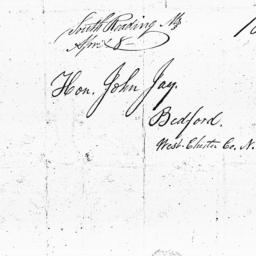 South Reading Ms
April 8
Hon. John Jay.
Bedford.
West-Chester Co. N.